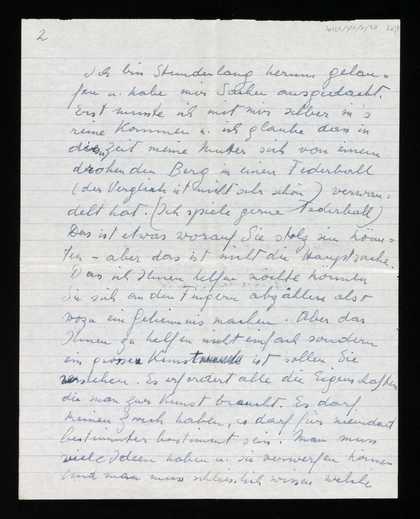 2
Ich bin Stundenlang herum gelau-
fen u. habe mir Sachen ausgedacht.
Erst musste ich mit mir selber in's
reine Kommen u. ich glaube das in
die Zeit meine Mutter sich von einem
drohenden Berg in einen Federball
(der Vergleich ist nicht sehr schön) verwan-
delt hat. (Ich spiele gerne Federball)
Das ist etwas worauf Sie stolz sein kön-
ten - aber das ist nicht die Hauptsache.
Das ich Ihnen helfen möchte könnten
Sie sich an den Fingern abzählen also
wozu ein Geheimnis machen. Aber das
Ihnen zu helfen nicht einfach sondern
ein grosses Kunst ist sollen Sie
verstehen. Es erfordert alle die Eigenschaften
die man zur Kunst braucht. Es darf
keinen Zweck haben, es darf für niemand
bestimmter bestimmt sein. Man muss
viele Ideen haben u. sie verwerfen können
und man muss schliesslich wissen welche